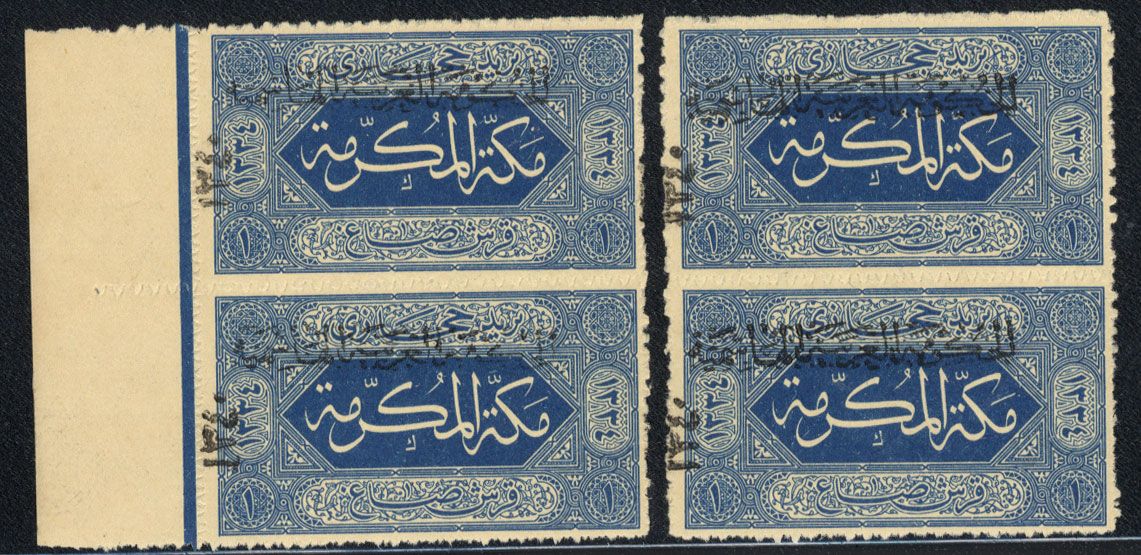 بريد حجازي
الحكومة العربية الهاشمية
مكة المكرمة
١٣٣٤
١٣٣٤
١٣٤٠
١ قرش صاغ ١
بريد حجازي
الحكومة العربية الهاشمية
مكة المكرمة
١٣٣٤
١٣٣٤
١٣٤٠
١ قرش صاغ ١
بريد حجازي
الحكومة العربية الهاشمية
مكة المكرمة
١٣٣٤
١٣٣٤
١٣٤٠
١ قرش صاغ ١
بريد حجازي
الحكومة العربية الهاشمية
مكة المكرمة
١٣٣٤
١٣٣٤
١٣٤٠
١ قرش صاغ ١